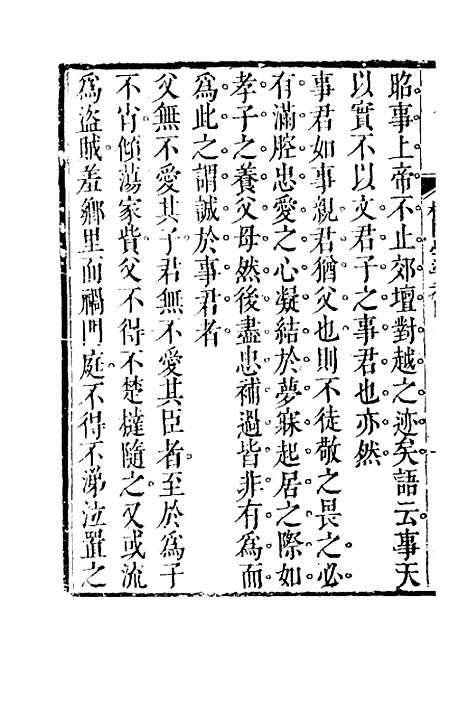 昭事上帝不止郊壇對越之迹矣語云事天
以實不以文君子之事君也亦然
事君如事親君猶父也則不徒敬之畏之必
有滿腔忠愛之心凝結於夢寐起居之際如
孝子之養父母然後盡忠補過皆非有為而
為此之謂誠於事君者
父無不愛其子君無不愛其臣者至於為子
不肖傾蕩家貲父不得不楚撻隨之又或流
為盜賊羞鄉里而禍門庭不得不涕泣置之